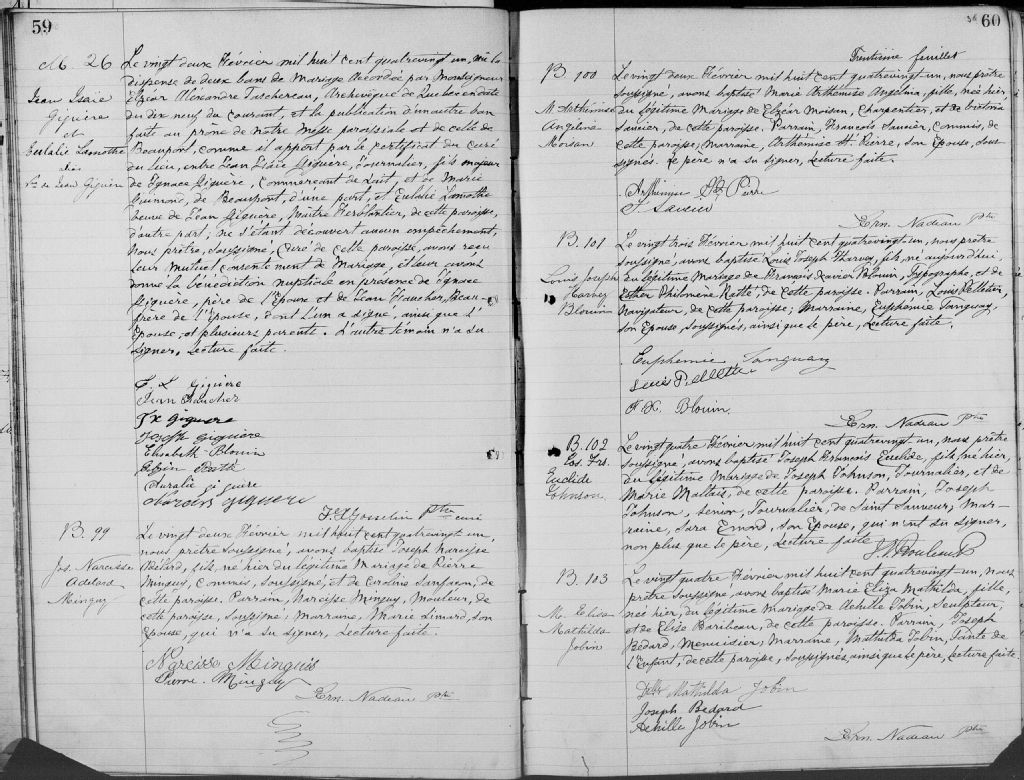 59
M. 26
Jean Isaïe
Giguère
et
Eulalie Lamothe
alias
Vve de Jean Giguère
Le vingt deux Février mil huit cent quatrevingt un, vu la
dispense de deux bans de Mariage accordée par Monseigneur
Elzéar Alexandre Taschereau, Archevêque de Québec en date
du dix neuf du courant, et la publication d'un autre ban
faite au prone de notre Messe paroissiale et de celle de
Beauport, comme il appert par le certificat du curé
du lieu, entre Jean Isaïe Giguère, Journalier, fils majeur
de Ignace Giguère, Commerçant de Lait, et de Marie
de Beauport, d'une part, et Eulalie Lamothe
veuve de Jean Giguère, Maître Ferblantier, de cette paroisse,
d'autre part; ne s'étant découvert aucun empêchement,
Nous prêtre, Soussigné, Curé de cette paroisse, avons reçu
leur mutuel consentement de Mariage, et leur avons
donné la bénédiction nuptiale en présence de Ignace
Giguère, père de l'Epoux et de Jean Faucher, Beau-
frère de l'Epouse, dont l'un a signé, ainsi que l'
Epouse, et plusieurs parents. L'autre témoin n'a su
signer. Lecture faite.
Giguere
Jean Faucher
Fx Giguere
Joseph Giguère
Elisabeth Blouin
Auralie giguere
Narcis giguere
F. X. Gosselin Ptre curé
B. 99
Jos. Narcisse
Adelard
Minguy
Le vingt deux Février mil huit cent quatrevingt un,
nous prêtre soussigné, avons baptisé Joseph Narcisse
Adélard, fils, né hier du légitime Mariage de Pierre
Minguy, Commis, soussigné, et de Caroline Sanfaçon, de
cette paroisse. Parrain, Narcisse Minguy, Mouleur, de
cette paroisse, soussigné; Marraine, Marie Simard, son
Epouse, qui n'a su signer, Lecture faite.
Narcisse Minguis
Pierre Minguy
Ern. Nadeau Ptre
60
Trentième feuillet
B. 100
M. Arthémise
Angélina
Moisan
Le vingt deux Février mil huit cent quatrevingt un, nous prêtre
soussigné, avons baptisé Marie Arthémise Angélina, fille, née hier,
du légitime Mariage de Elzéar Moisan, Charpentier, et de Victoria
Saucier, de cette paroisse. Parrain, François Saucier, Commis, de
cette paroisse; Marraine, Arthémise St. Pierre, son Epouse, sous-
signés. Le père n'a su signer, Lecture faite.
Arthémise St Pierre
F Saucier
Ern. Nadeau Ptre
B. 101
Louis Joseph
Harvey
Blouin
Le vingt trois Février mil huit cent quatrevingt un, nous prêtre
soussigné, avons baptisé Louis Joseph Harvey, fils, né aujourd'hui,
du légitime Mariage de François Xavier Blouin, Typographe, et de
Esther Philomène Ratté, de cette paroisse. Parrain, Louis Pelletier,
Navigateur, de cette paroisse; Marraine, Euphémie Tanguay,
son Epouse, soussignés, ainsi que le père, Lecture faite.
Euphémie Tanguay
Louis Pelletier
F. X. Blouin
Ern. Nadeau Ptre
B. 102
Jos. Frs.
Euclide
Johnson
Le vingt quatre Février mil huit cent quatrevingt un, nous prêtre
soussigné, avons baptisé Joseph François Euclide, fils, né hier,
du légitime Mariage de Joseph Johnson, Journalier, et de
Marie Maltais, de cette paroisse. Parrain, Joseph
Johnson, senior, Journalier, de Saint Sauveur, Mar-
raine, Sara Emond, son Epouse, qui n'ont su signer,
non plus que le père, Lecture faite
B. 103
M. Eliza
Mathilda
Jobin
Le vingt quatre Février mil huit cent quatrevingt-un, nous
prêtre soussigné, avons baptisé Marie Eliza Mathilda, fille,
née hier, du légitime Mariage de Achille Jobin, Sculpteur,
et de Elise Baribeau, de cette paroisse. Parrain, Joseph
Bédard, Menuisier; Marraine, Mathilda Jobin, Tante de
l'Enfant, de cette paroisse, soussignés, ainsi que le père, Lecture faite.
Delle Mathilda Jobin
Joseph Bedard
Achille Jobin
Ern. Nadeau Ptre